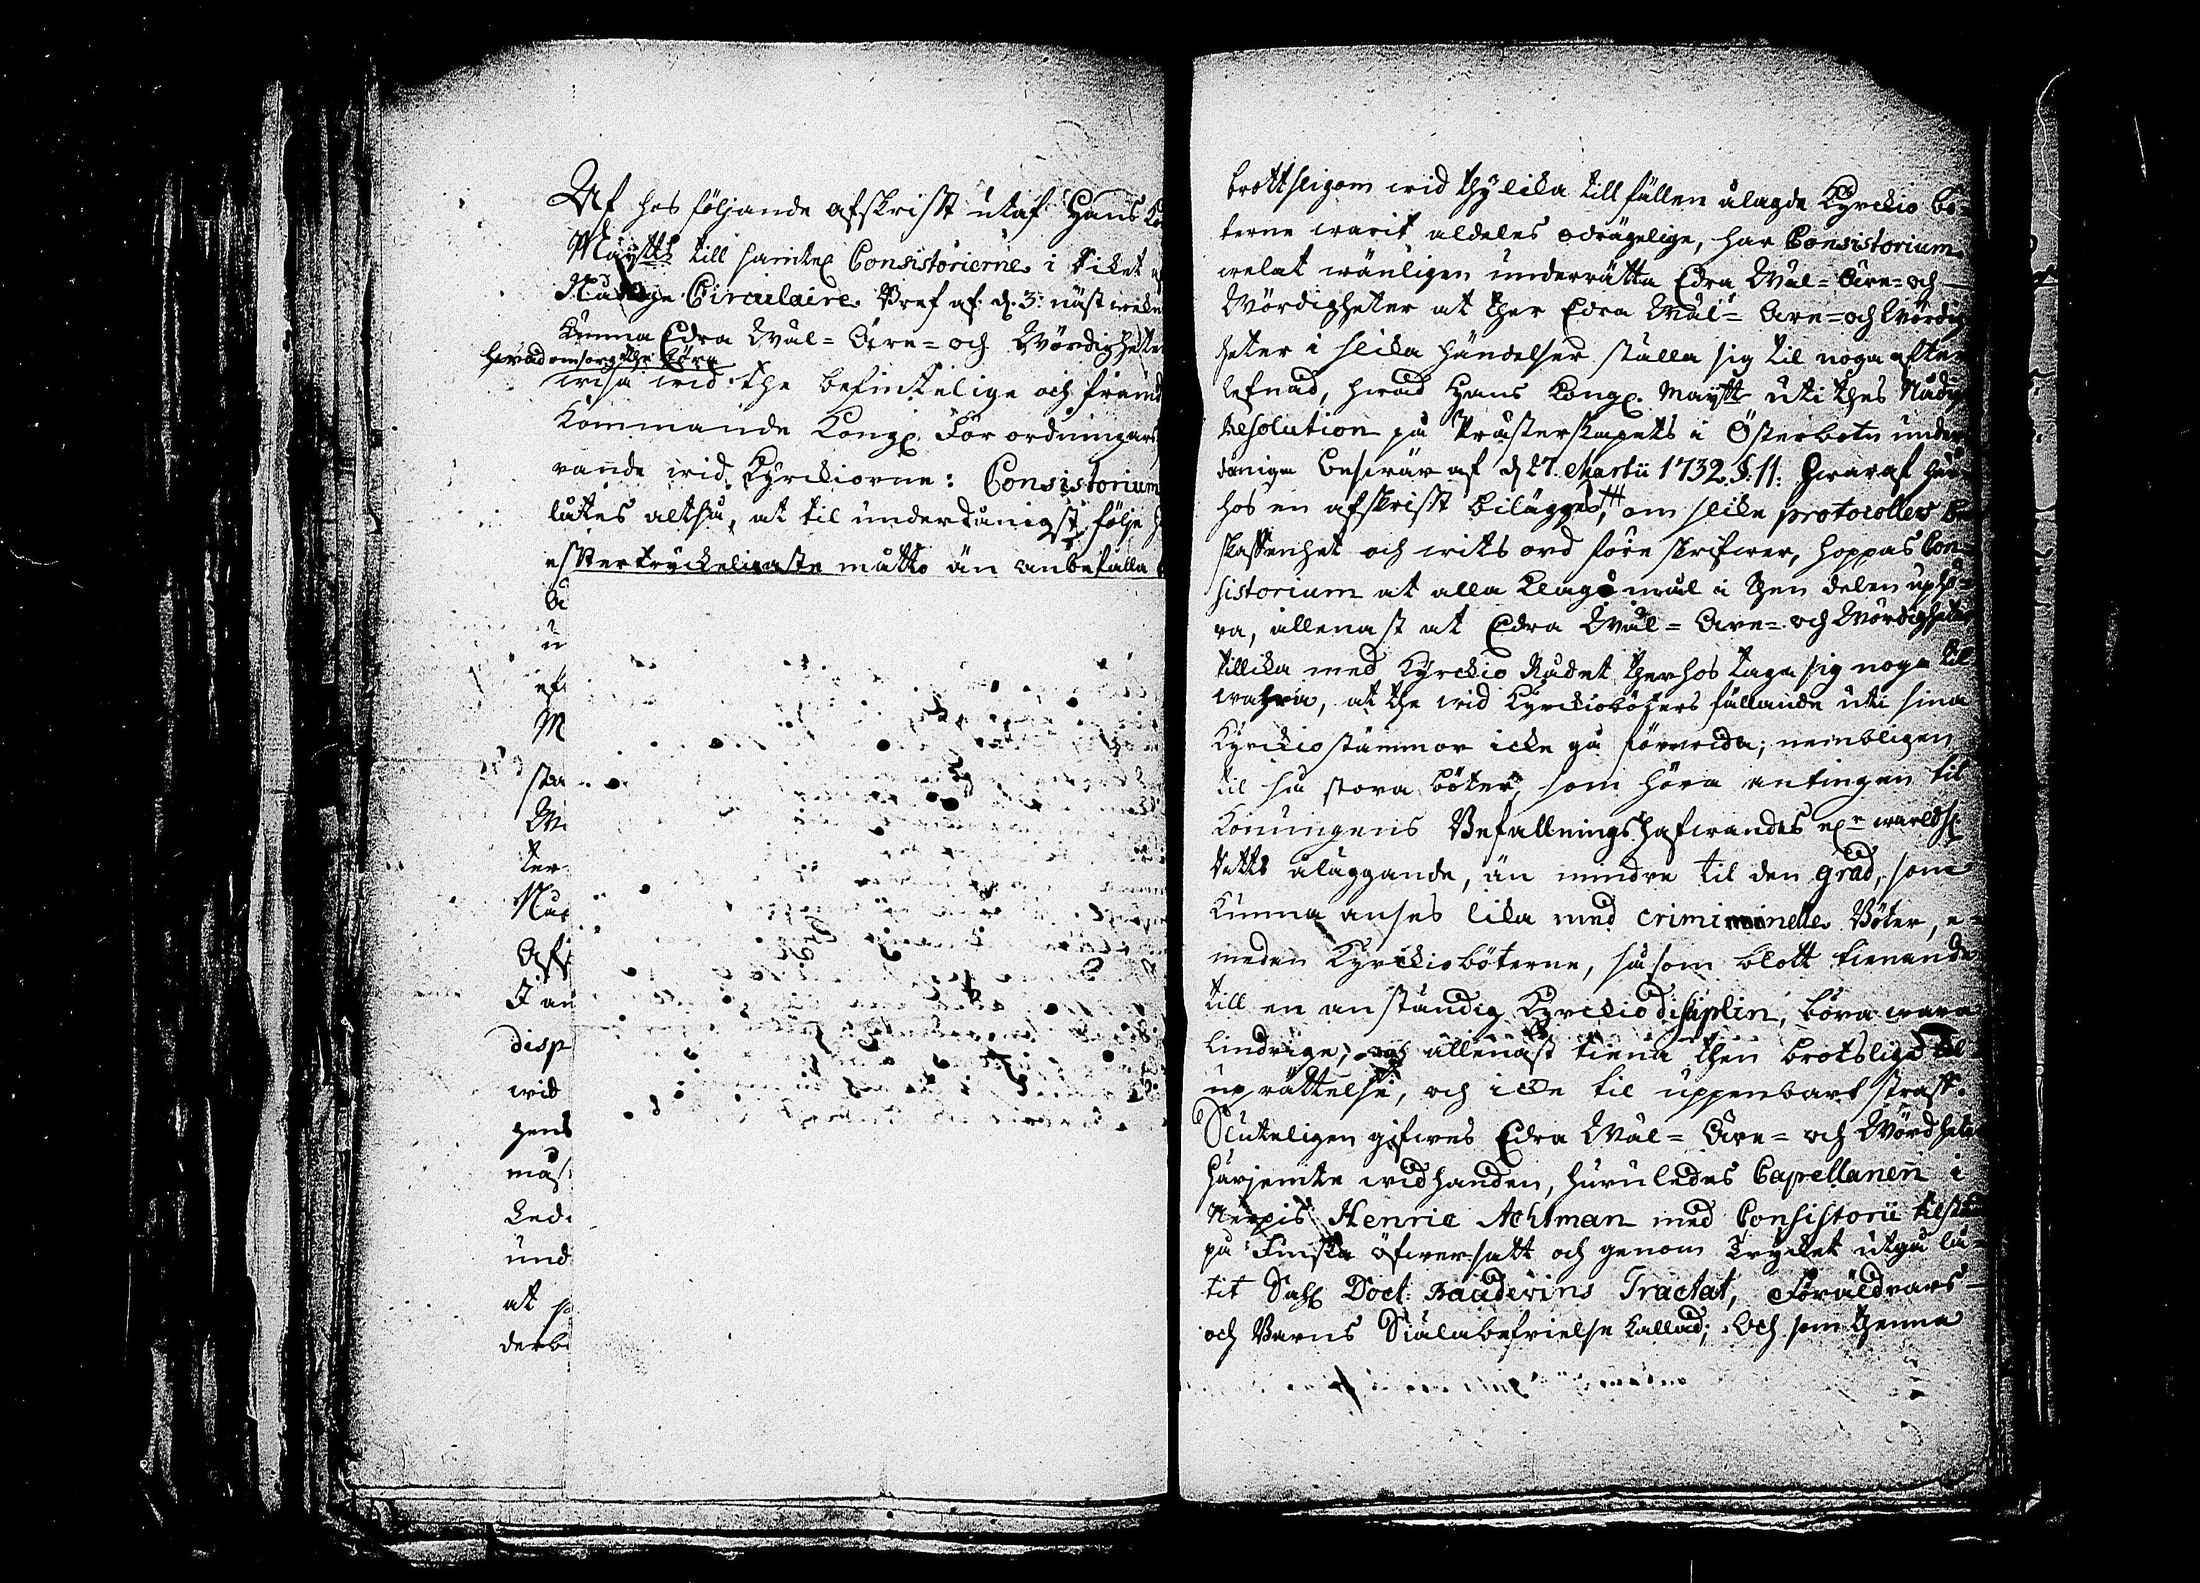 Af hos följande afskrifft utaf Hans Kö
Maytts till samtel. Consistorierne i Riket
Nådige Circulaire Bref af d. 3: näst
kunna Edra Wäl- Ähre- och Wördigheter
hwad omsorg the böra
wisa wid the befintelige och fram
kommande Kongl. Förordningars
rande wid Kyrkiorne: Consistorium
låtes altså, at til underdånigst följe
efftertryckeligaste måtto än anbefalla
Ä
u
eft
M
sta
Wi
ter
Nåd
Aff
I an
disp
wid
gens
mås
Led
und
at
derb
brottsligom wid thylika tillfällen ålagde Kyrckio bö-
terne warit aldeles odrägelige, har Consistorium
welat wänligen underrätta Edra Wäl- Ähre- och
Wördigheter at ther Edra Wäl- Ähre- och Wördig
heter i slika händelser ställa sig til noga efter
lefnad, hwad Hans Kongl. Maytt uti thes Nådig
Resolution på Prästerskapets i Österbotn under
dåniga beswär af d. 27 Martii 1732. §. 11: hwaraf här
hos en afskrifft bilägges, om slika protocollers be
skaffenhet och witsord före skrifwer, hoppas Con-
sistorium at alla klagomål i then delen uphö-
ra, allenast at Edra Wäl- Ähre- och Wördigheter
tillika med Kyrckio Rådet therhos taga sig noga til
wahra, at the wid Kyrckioböters fällande uti sina
Kyrckiostämmor icke gå förwida; nembligen
til så stora böter, som höra antingen til
Konungens Befallningshafwandes elr werldsl.
Rätts åläggande, än mindre til den grad, som
kunna anses lika med criminelle Böter, e-
medan Kyrckioböterne, såsom blott tienande
till en anständig Kyrckiodisiplin, böra wara
lindrige, och allenast tiena then brotslige til
uprättelse, och icke til uppenbart straff.
Sluteligen gifwes Edra Wäl- Ähre- och Wördhet
härjemte widhanden, huruledes Capellanen i
Nerpis Henric Achtman med Consistorii tilstånd
på Finska öfwersatt och genom Trycket utgå lå-
tit Sahl. Doct: Baudevins Tractat, Föräldrars-
och Barns Siälabefrielse kallad; Och som thenna